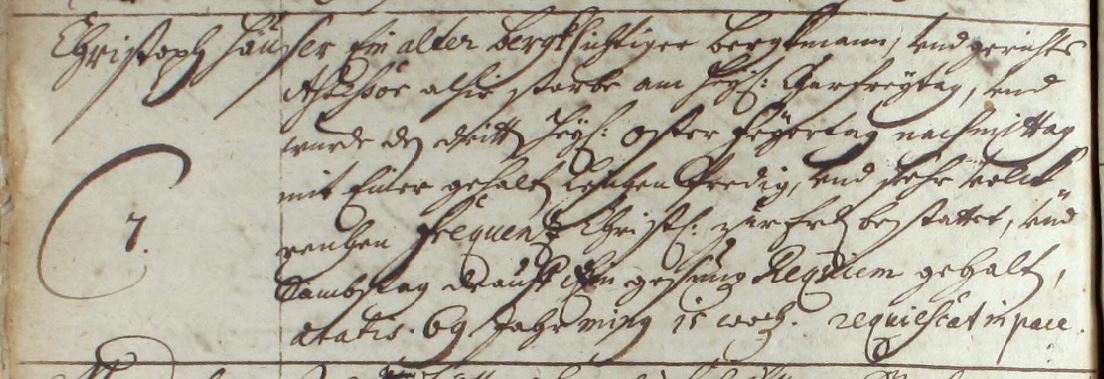 Christoph Häußer Ein alter bergksichtiger bergkmann, vnd gerichts
Assessor alhie starbe am heyl: Carfreÿtag, vnd
wurde den dritten heyl: oster feÿertag nachmittag
mit Einer gehaltenen Leichen Predig, vnd sehr volck
reichen frequentz Christl: zur Erden bestattet, vnd
Sambstag drauff gehalten,
ætatis. 69 Jahr wenig 15 woch. requiescat in pace.
7.